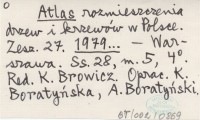 Atlas rozmieszczenia
drzew i krzewów w Polsce.
Zesz. 27. 1979... – War-
szawa. Ss. 28, m. 5, 4°.
Red. K. Browicz. Oprac. K.
Boratyńska, A. Boratyński.